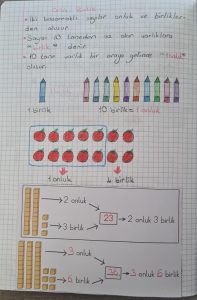 Onluk Birlik
• İki basamaklı sayılar onluk ve birlikler-
den oluşur.
• Sayısı 10 taneden az olan varlıklara
"birlik" denir.
• 10 tane varlık bir araya gelince "onluk"
oluşur.
1 birlik
10 birlik = 1 onluk
1 onluk
4 birlik
2 onluk
3 birlik
23
2 onluk 3 birlik
3 onluk
6 birlik
36
3 onluk 6 birlik